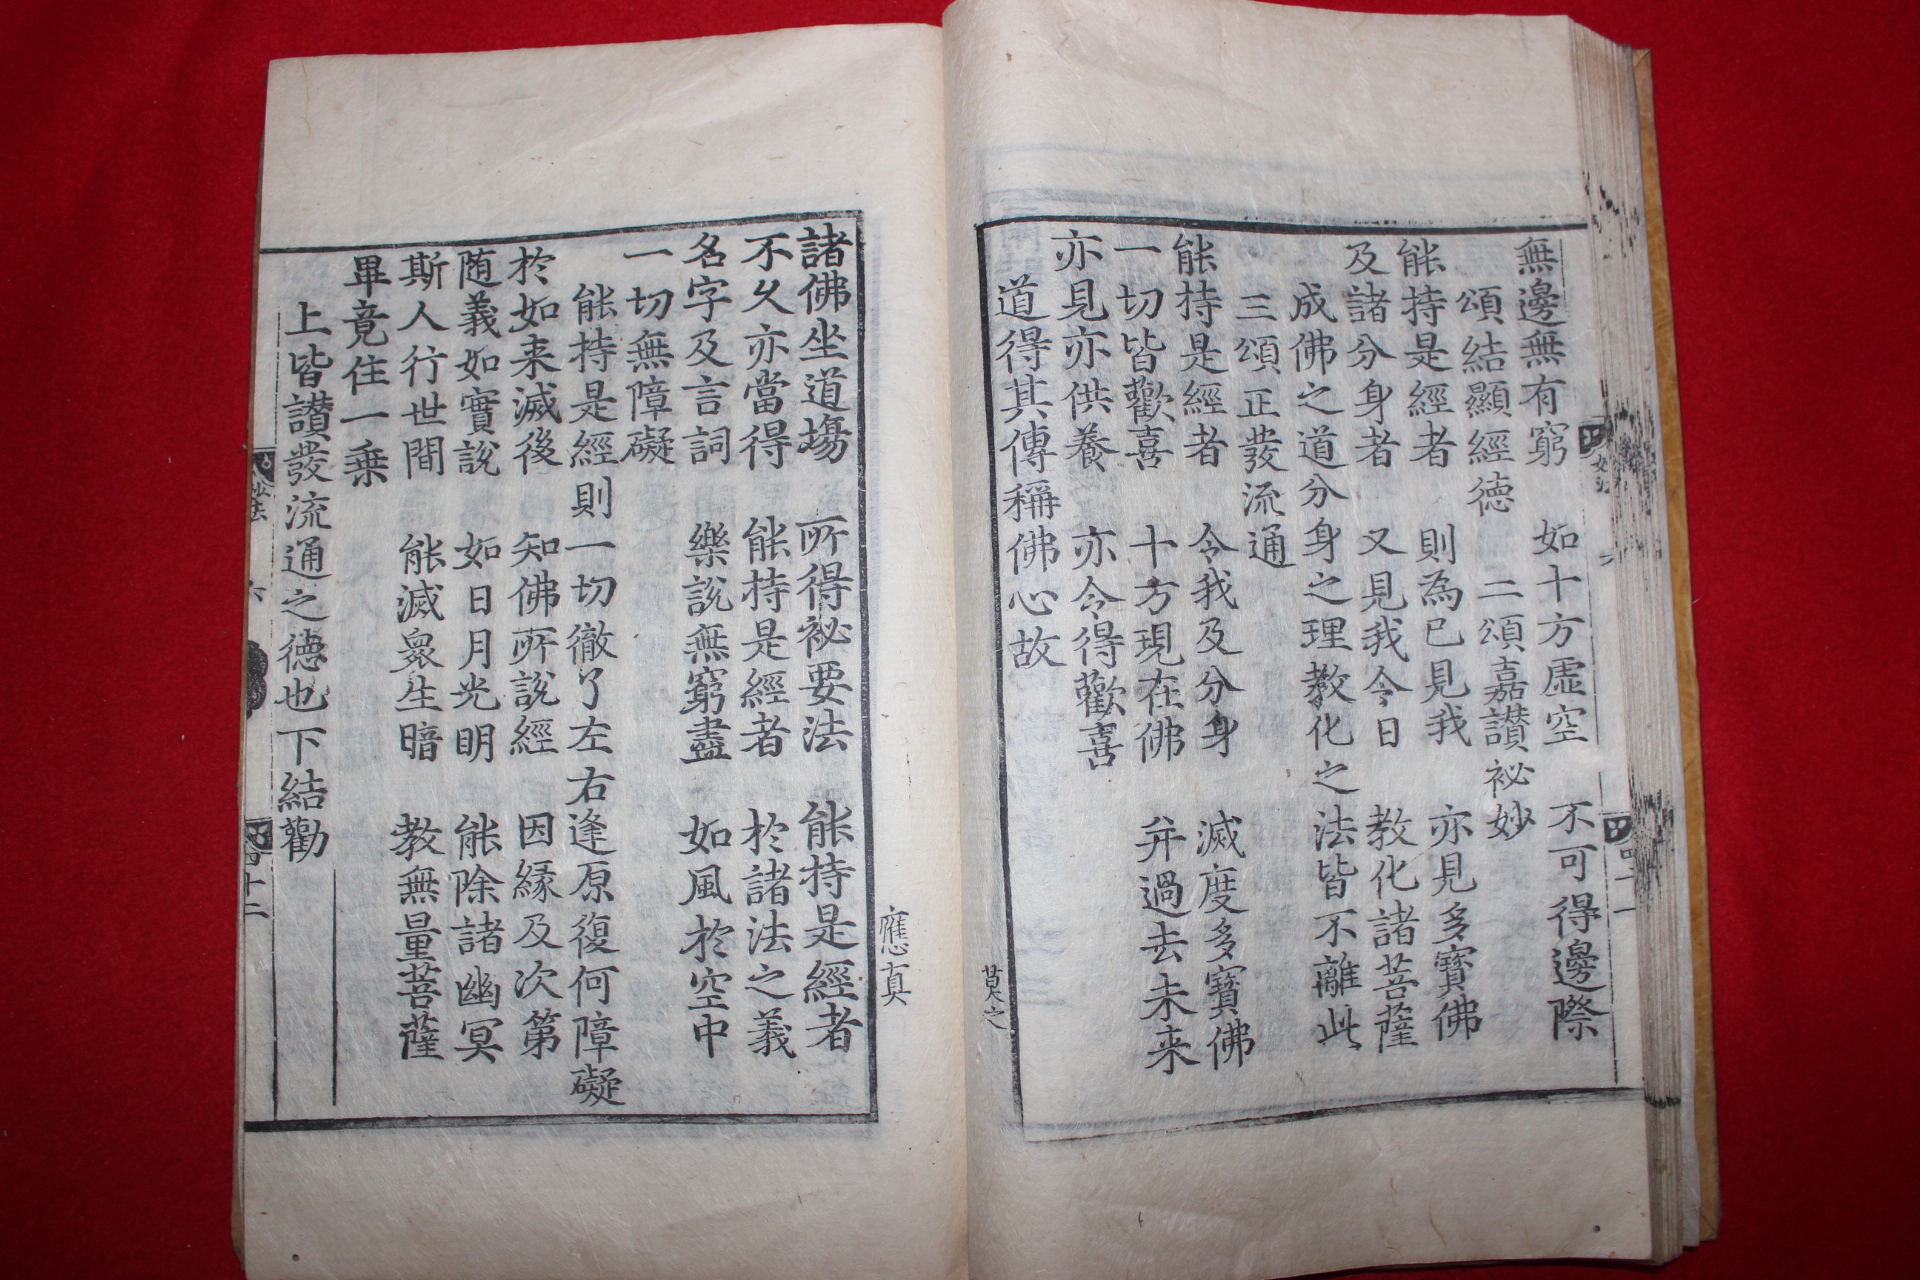 無邊無有窮 如十方虛空 不可得邊際
頌結顯經德 二頌嘉讃祕妙
能持是經者 則為已見我 亦見多寶佛
及諸分身者 又見我今日 教化諸菩薩
成佛之道分身之理教化之法皆不離此
三頌正發流通
能持是經者 令我及分身 滅度多寶佛
一切皆歡喜 十方現在佛 并過去未来
亦見亦供養 亦令得歡喜
道得其傳稱佛心故
莫之
應真
諸佛坐道場 所得祕要法 能持是經者
不久亦當得 能持是經者 於諸法之義
名字及言詞 樂說無窮盡 如風於空中
一切無障礙
能持是經則一切徹了左右逢原復何障礙
於如来滅後 知佛所說經 因緣及次第
随義如實說 如日月光明 能除諸幽冥
斯人行世間 能滅衆生暗 教無量菩薩
畢竟住一乗
上皆讃發流通之德也下結勸
妙法 六 四十二